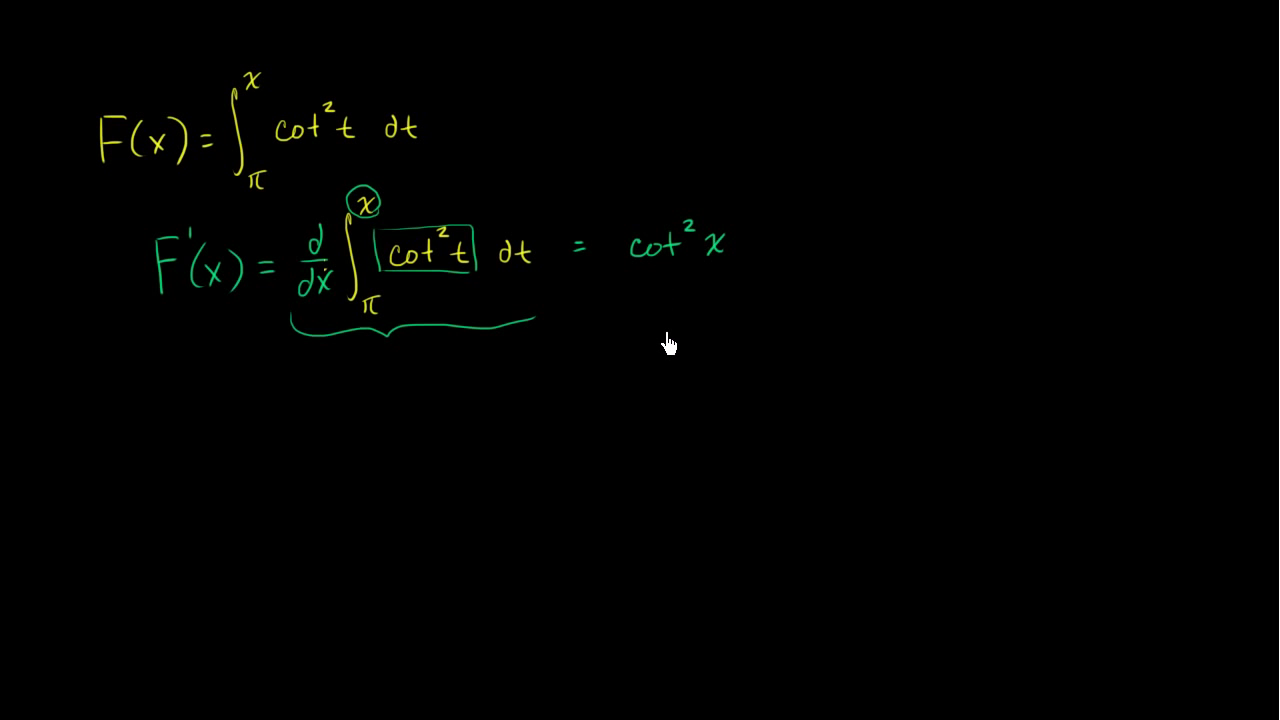 F(x) = ∫_π^x cot²t dt
F'(x) = d/dx ∫_π^x cot²t dt = cot²x